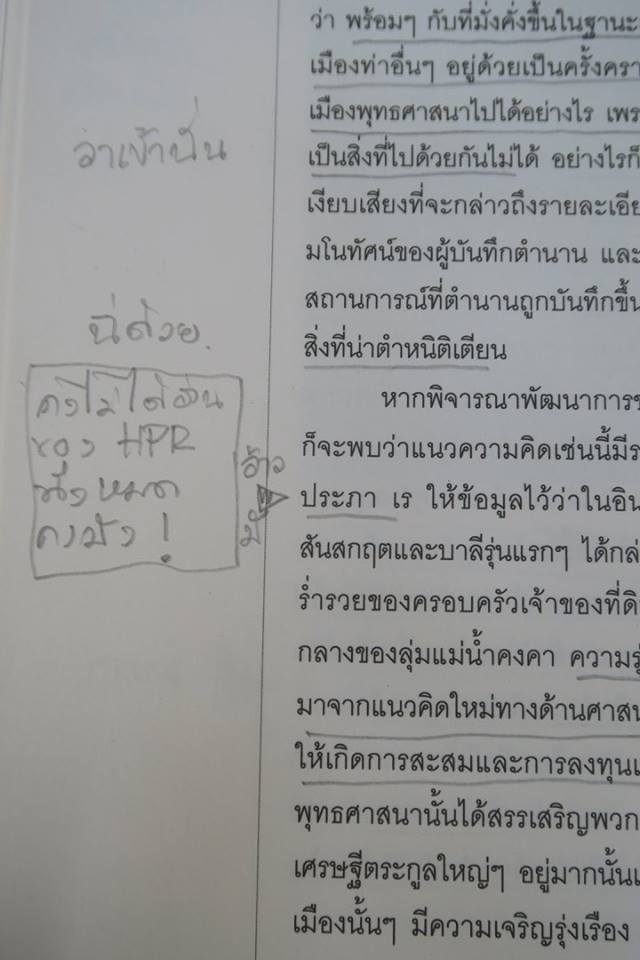 ว่า พร้อมๆ กับที่มั่งคั่งขึ้นในฐานะ
เมืองท่าอื่นๆ อยู่ด้วยเป็นครั้งครา
เมืองพุทธศาสนาไปได้อย่างไร เพร
เป็นสิ่งที่ไปด้วยกันไม่ได้ อย่างไรก็
เงียบเสียงที่จะกล่าวถึงรายละเอีย
มโนทัศน์ของผู้บันทึกตำนาน และ
สถานการณ์ที่ตำนานถูกบันทึกขึ้น
สิ่งที่น่าตำหนิติเตียน
หากพิจารณาพัฒนาการข
ก็จะพบว่าแนวความคิดเช่นนี้มีร
ประภา เร ให้ข้อมูลไว้ว่าในอิน
สันสกฤตและบาลีรุ่นแรกๆ ได้กล่
ร่ำรวยของครอบครัวเจ้าของที่ดิ
กลางของลุ่มแม่น้ำคงคา ความรุ่
มาจากแนวคิดใหม่ทางด้านศาสน
ให้เกิดการสะสมและการลงทุนเ
พุทธศาสนานั้นได้สรรเสริญพวก
เศรษฐีตระกูลใหญ่ๆ อยู่มากนั้นเ
เมืองนั้นๆ มีความเจริญรุ่งเรือง
ว่าเข้านั่น
นี่ด้วย.
คงไม่ได้อ่าน
ของ HPR
ทั้งหมด
คงมั้ง!